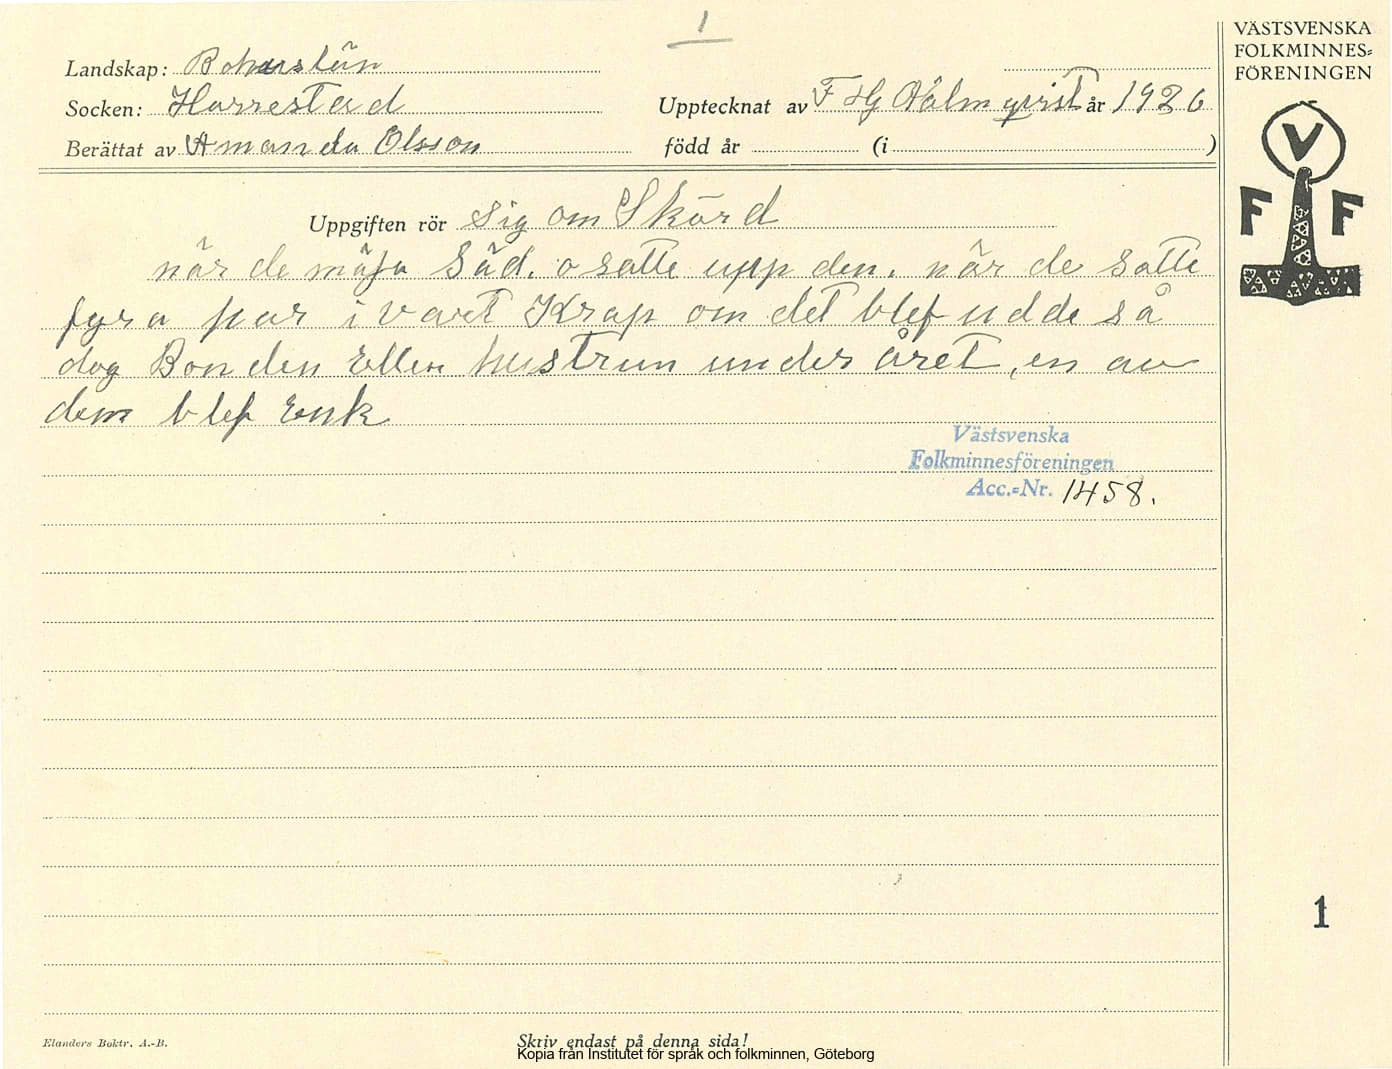 1
VÄSTSVENSKA
FOLKMINNES=
FÖRENINGEN
Landskap: Bohuslän
Socken: Harrestad
Upptecknat av F Hj Malmqvist år 1926
Berättat av Amanda Olsson
född år (i )
V
F F
Uppgiften rör Sig om Skörd
når de mäja Säd. o satte upp den. når de satte
fyra par i vart Krap om det blef udde så
dog Bonden Eller hustrun under året, en av
dem blef Enk
Västsvenska
Folkminnesföreningen
Acc.=Nr. 1458.
1
Elanders Boktr. A.-B.
Skriv endast på denna sida!
Kopia från Institutet för språk och folkminnen, Göteborg